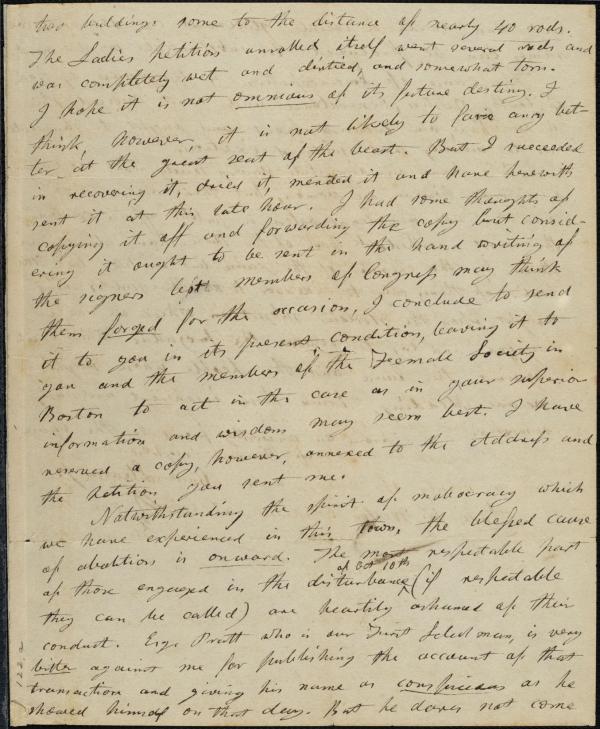 two buildings some to the distance of nearly 40 rods.
The Ladies Petition unrolled itself went several rods and
was completely wet and dirtied, and somewhat torn.
I hope it is not omnious of its future destiny. I
think, however, it is not likely to fare any bet-
ter at the great seat of the beast. But I succeeded
in recovering it, dried it, mended it and have herewith
sent it at this late hour. I had some thoughts of
copying it off and forwarding the copy but consid-
ering it ought to be sent in the hand writing of
the signers lest members of Congress may think
them forged for the occasion, I conclude to send
it to you in its present condition, leaving it to
you and the members of the Feemale Society in
Boston to act in the case as in your superior
information and wisdom may seem best. I have
reserved a copy, however, annexed to the Address and
the Petition you sent me.
Notwithstanding the spirit of mobocracy which
we have experienced in this town, the blessed cause
of abolition is onward. The most respectable part
of Oct 10th
of those engaged in the disturbance (if respectable
they can be called) are heartily ashamed of their
conduct. Esqr Pratt who is our First Selectman, is very
bitter against me for publishing the account of that
transaction and giving his name as conspicious as he
showed himself on that day. But he dares not come
122.2